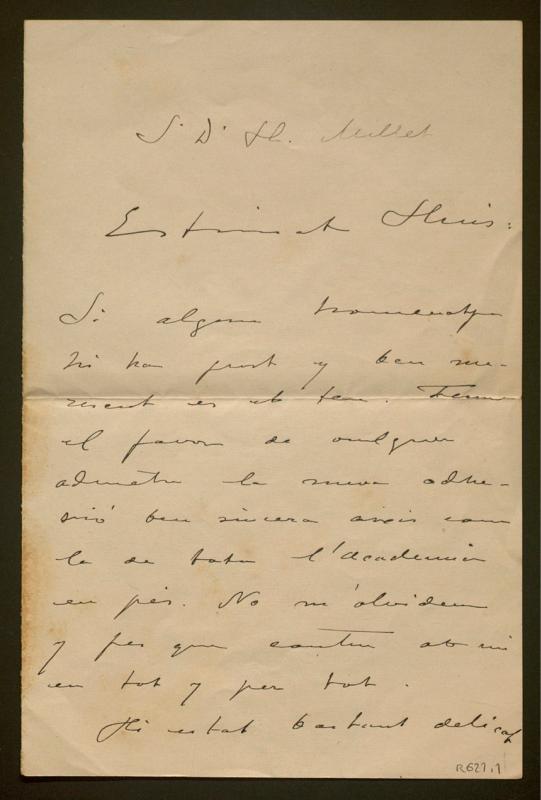 Sr Dn Ll. Millet
Estimat Lluis:
Si algun homenatge
hi ha just y ben me-
rescut es el teu. Fesme
el favor de vulguer
admetre la meva adhe-
sió ben sincera aixis com
la de tota l'academia
en pès. No m'olviden
y fes que contin ab mi
en tot y per tot.
Hi estat bastant delicat
R627,1